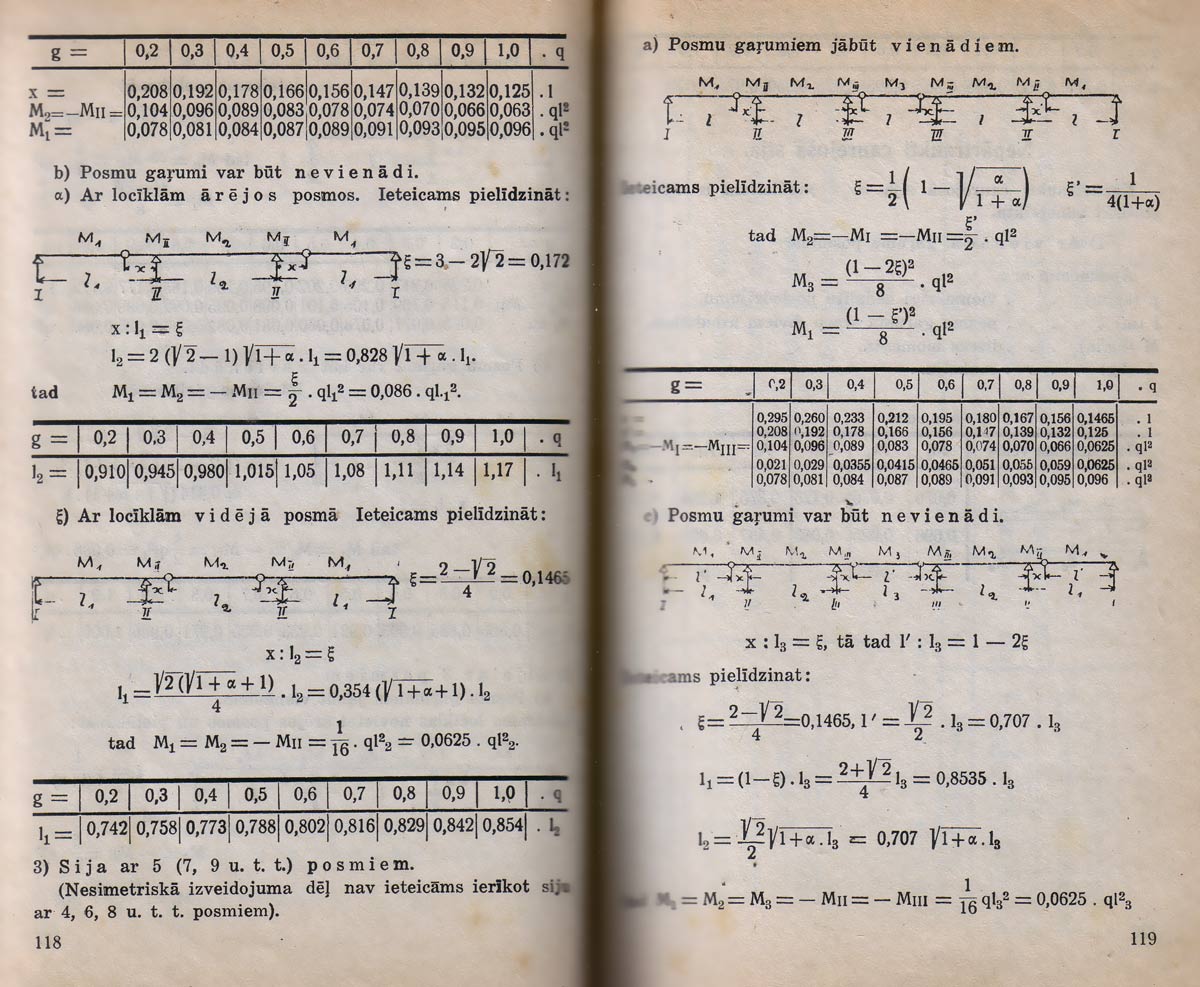 g = | 0,2 | 0,3 | 0,4 | 0,5 | 0,6 | 0,7 | 0,8 | 0,9 | 1,0 | . q
x = |0,208|0,192|0,178|0,166|0,156|0,147|0,139|0,132|0,125| . l
M₂=—MII=|0,104|0,096|0,089|0,083|0,078|0,074|0,070|0,066|0,063| . ql²
M₁ = |0,078|0,081|0,084|0,087|0,089|0,091|0,093|0,095|0,096| . ql²
b) Posmu gaŗumi var būt nevienādi.
α) Ar locīklām ārējos posmos. Ieteicams pielīdzināt:
M₁ M_II M₂ M_II M₁
x x
l₁ l₂ l₁
I II II I
ξ=3 — 2√2 = 0,172
x : l₁ = ξ
l₂ = 2 (√2 — 1) √1+α . l₁ = 0,828 √1+α . l₁.
tad M₁ = M₂ = — MII = ξ/2 . ql₁² = 0,086. ql.₁².
g = | 0,2 | 0,3 | 0,4 | 0,5 | 0,6 | 0,7 | 0,8 | 0,9 | 1,0 | . q
l₂ = |0,910|0,945|0,980|1,015|1,05 |1,08 |1,11 |1,14 |1,17 | . l₁
ξ) Ar locīklām vidējā posmā Ieteicams pielīdzināt:
M₁ M_II M₂ M_II M₁
x x
l₁ l₂ l₁
I II II I
ξ = (2 — √2)/4 = 0,1465
x : l₂ = ξ
l₁ = √2 (√1+α + 1)/4 . l₂ = 0,354 (√1+α + 1) . l₂
tad M₁ = M₂ = — MII = 1/16 . ql²₂ = 0,0625 . ql²₂.
g = | 0,2 | 0,3 | 0,4 | 0,5 | 0,6 | 0,7 | 0,8 | 0,9 | 1,0 | . q
l₁ = |0,742|0,758|0,773|0,788|0,802|0,816|0,829|0,842|0,854| . l₂
3) Sija ar 5 (7, 9 u. t. t.) posmiem.
(Nesimetriskā izveidojuma dēļ nav ieteicāms ierīkot
ar 4, 6, 8 u. t. t. posmiem).
118
a) Posmu gaŗumiem jābūt vienādiem.
M₁ M_II M₂ M_III M₃ M_III M₂ M_II M₁
x x' x' x
l l l l l
I II III III II I
pielīdzināt: ξ = 1/2 ( 1 — √α/(1 + α) ) ξ' = 1/4(1+α)
tad M₂=—MI =—MII=ξ'/2 . ql²
M₃ = (1 — 2ξ)²/8 . ql²
M₁ = (1 — ξ')²/8 . ql²
g = | 0,2 | 0,3 | 0,4 | 0,5 | 0,6 | 0,7 | 0,8 | 0,9 | 1,0 | . q
|0,295|0,260|0,233 |0,212 |0,195 |0,180|0,167|0,156|0,1465| . l
|0,208|0,192|0,178 |0,166 |0,156 |0,147|0,139|0,132|0,125 | . l
—MI=—MIII= |0,104|0,096|0,089 |0,083 |0,078 |0,074|0,070|0,066|0,0625| . ql²
|0,021|0,029|0,0355|0,0415|0,0465|0,051|0,055|0,059|0,0625| . ql²
|0,078|0,081|0,084 |0,087 |0,089 |0,091|0,093|0,095|0,096 | . ql²
Posmu gaŗumi var būt nevienādi.
M₁ M_II M₂ M_III M₃ M_III M₂ M_II M₁
l' x x l' x x l'
l₁ l₂ l₃ l₂ l₁
I II III III II I
x : l₃ = ξ, tā tad l' : l₃ = 1 — 2ξ
pielīdzinat:
ξ= (2—√2)/4 =0,1465, l' = √2/2 . l₃ = 0,707 . l₃
l₁ = (1—ξ) . l₃ = (2+√2)/4 l₃ = 0,8535 . l₃
l₂ = √2/2 √1+α . l₃ = 0,707 √1+α . l₃
M₁ = M₂ = M₃ = — MII = — MIII = 1/16 ql₃² = 0,0625 . ql²₃
119